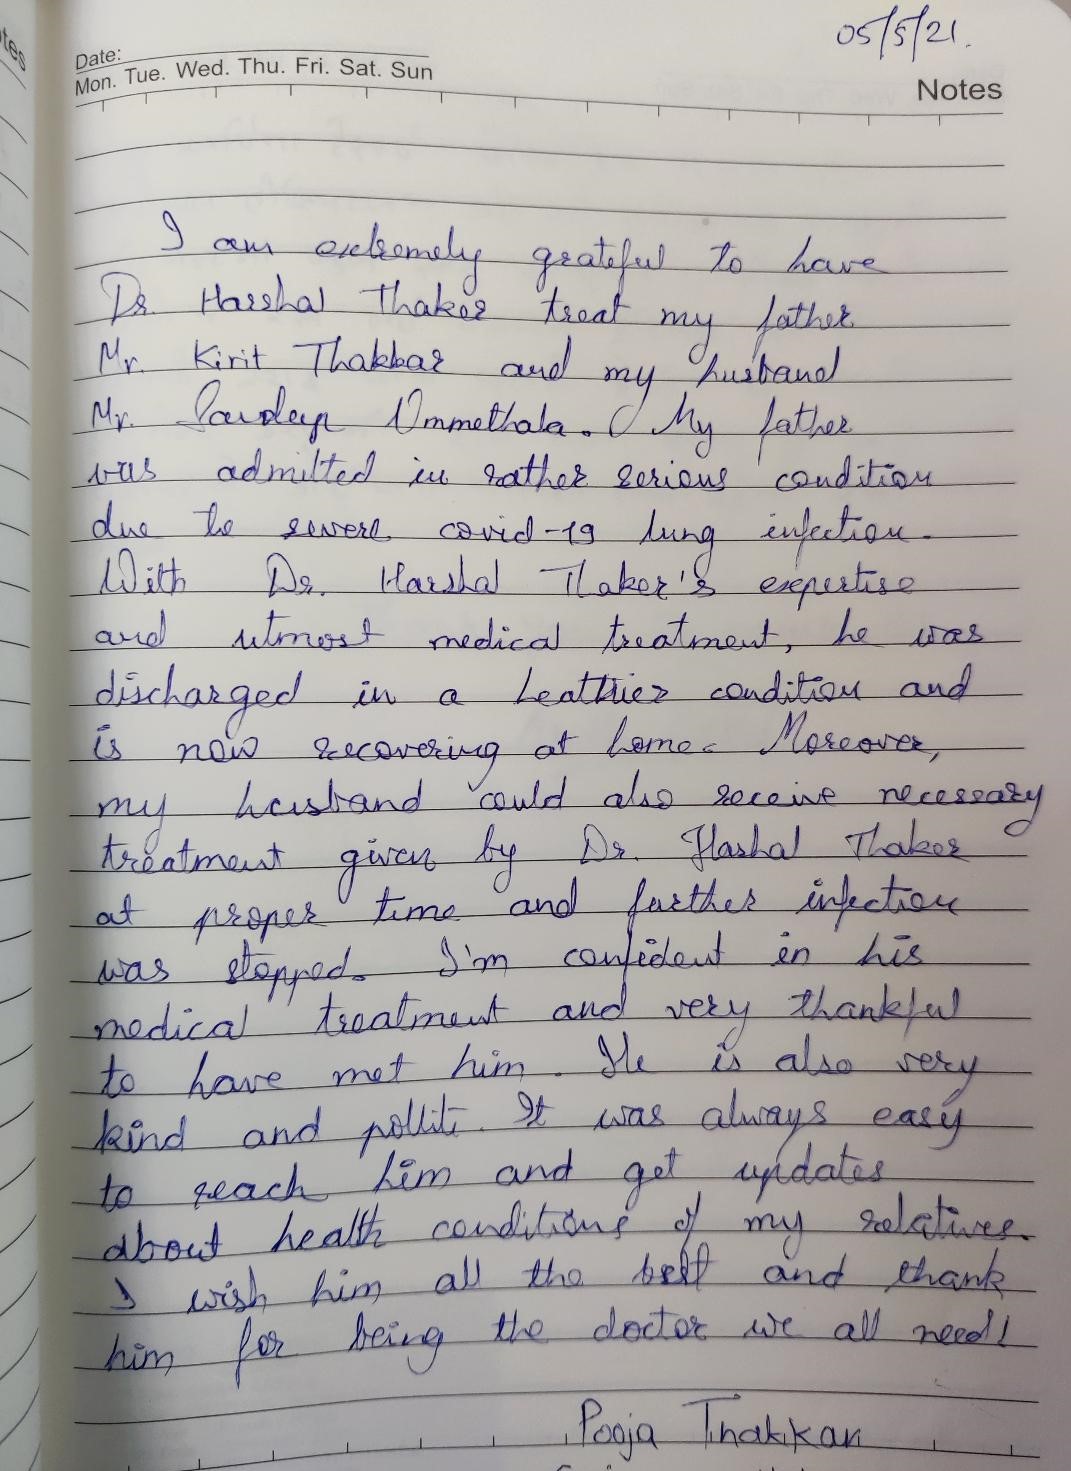 05/5/21.
Date:
Mon. Tue. Wed. Thu. Fri. Sat. Sun
Notes
I am extremely grateful to have
Dr. Harshal Thaker treat my father
Mr. Kirit Thakkar and my husband
Mr. Sandeep Ummethala. My father
was admitted in rather serious condition
due to severe covid-19 lung infection.
With Dr. Harshal Thaker's expertise
and utmost medical treatment, he was
discharged in a healthier condition and
is now recovering at home. Moreover,
my husband could also receive necessary
treatment given by Dr. Hashal Thaker
at proper time and further infection
was stopped. I'm confident in his
medical treatment and very thankful
to have met him. He is also very
kind and pollite. It was always easy
to reach him and get updates
about health conditions of my relatives.
I wish him all the best and thank
him for being the doctor we all need!
Pooja Thakkar